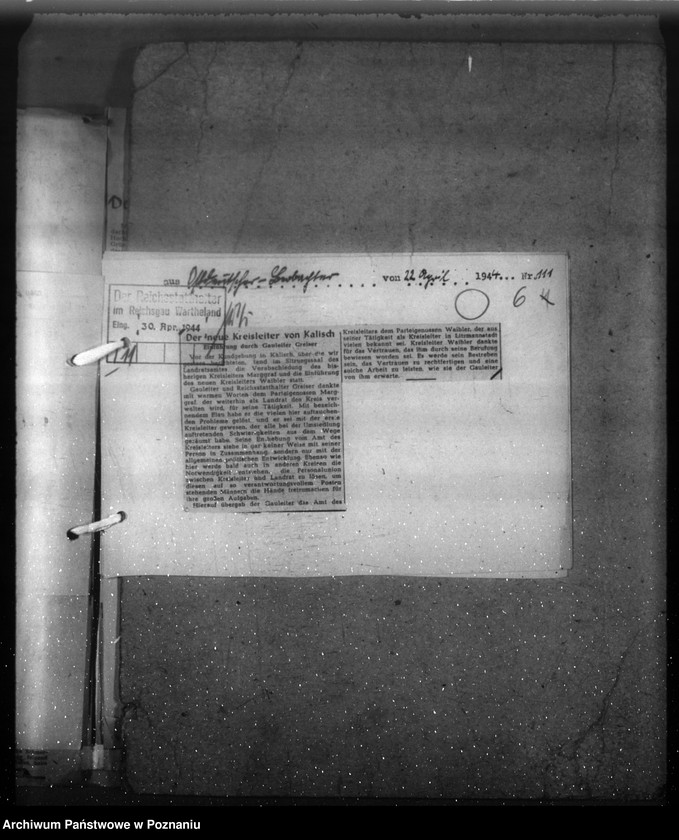 aus Ostdeutscher-Beobachter von 22. April 1944... Nr. 111
6
Der Reichsstatthalter
im Reichsgau Wartheland
Eing. 30. Apr. 1944
Der neue Kreisleiter von Kalisch
Einführung durch Gauleiter Greiser
Vor der Kundgebung in Kalisch, über die wir
fand im Sitzungssaal des
Landratsamtes die Verabschiedung des bis-
herigen Kreisleiters Marggraf und die Einführung
des neuen Kreisleiters Waibler statt.
Gauleiter und Reichsstatthalter Greiser dankte
mit warmen Worten dem Parteigenossen Marg-
graf, der weiterhin als Landrat den Kreis ver-
walten wird, für seine Tätigkeit. Mit bezeich-
nendem Elan habe er die vielen hier auftauchen-
den Probleme gelöst, und er sei mit der erste
Kreisleiter gewesen, der alle bei der Umsiedlung
auftretenden Schwierigkeiten aus dem Wege
geräumt habe. Seine Enthebung vom Amt des
Kreisleiters stehe in gar keiner Weise mit seiner
Person in Zusammenhang, sondern nur mit der
allgemeinen politischen Entwicklung. Ebenso wie
hier werde bald auch in anderen Kreisen die
Notwendigkeit entstehen, die Personalunion
zwischen Kreisleiter und Landrat zu lösen, um
diesen auf so verantwortungsvollem Posten
stehenden Männern die Hände freizumachen für
ihre großen Aufgaben.
Hierauf übergab der Gauleiter das Amt des
Kreisleiters dem Parteigenossen Waibler, der aus
seiner Tätigkeit als Kreisleiter in Litzmannstadt
vielen bekannt sei. Kreisleiter Waibler dankte
für das Vertrauen, das ihm durch seine Berufung
bewiesen worden sei. Es werde sein Bestreben
sein, das Vertrauen zu rechtfertigen und eine
solche Arbeit zu leisten, wie sie der Gauleiter
von ihm erwarte.
Archiwum Państwowe w Poznaniu